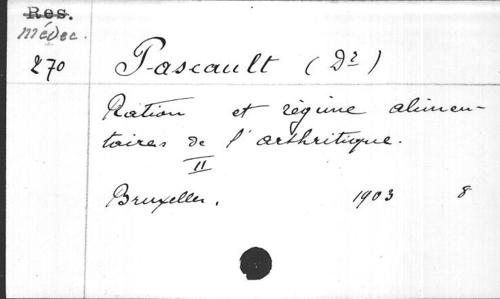 Res.
Médec.
270
Pascault (Dr)
Ration et régime alimen-
taires de l'arthritique.
II
Bruxelles. 1903 8